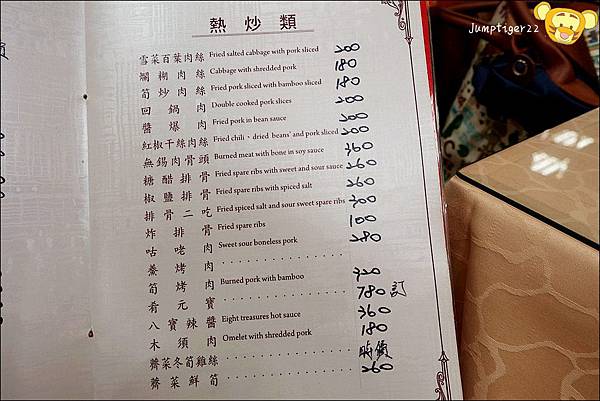 Jumptiger22
熱炒類
雪菜百葉肉絲 Fried salted cabbage with pork sliced 200
爛糊肉絲 Cabbage with shredded pork 180
筍炒肉絲 Fried pork sliced with bamboo sliced 180
回鍋肉 Double cooked pork slices 200
醬爆肉 Fried pork in bean sauce 200
紅椒干絲肉絲 Fried chili、dried beans' and pork sliced 200
無錫肉骨頭 Burned meat with bone in soy sauce 360
糖醋排骨 Fried spare ribs with sweet and sour sauce 260
椒鹽排骨 Fried spare ribs with spiced salt 260
排骨二吃 Fried spiced salt and sour sweet spare ribs 300
炸排骨 Fried spare ribs 100
咕咾肉 Sweet sour boneless pork 280
羹烤肉
筍烤肉 Burned pork with bamboo 320
肴元寶 780 訂
八寶辣醬 Eight treasures hot sauce 360
木須肉 Omelet with shredded pork 180
薺菜冬筍雞絲 時價
薺菜鮮筍 260